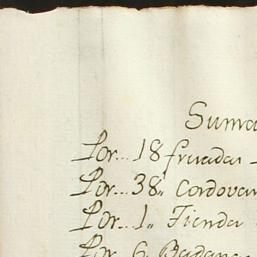 Suma
Por... 18 frasadas
Por... 38,, Cordovan
Por... 1,, Tienda
Por... 6 Badana